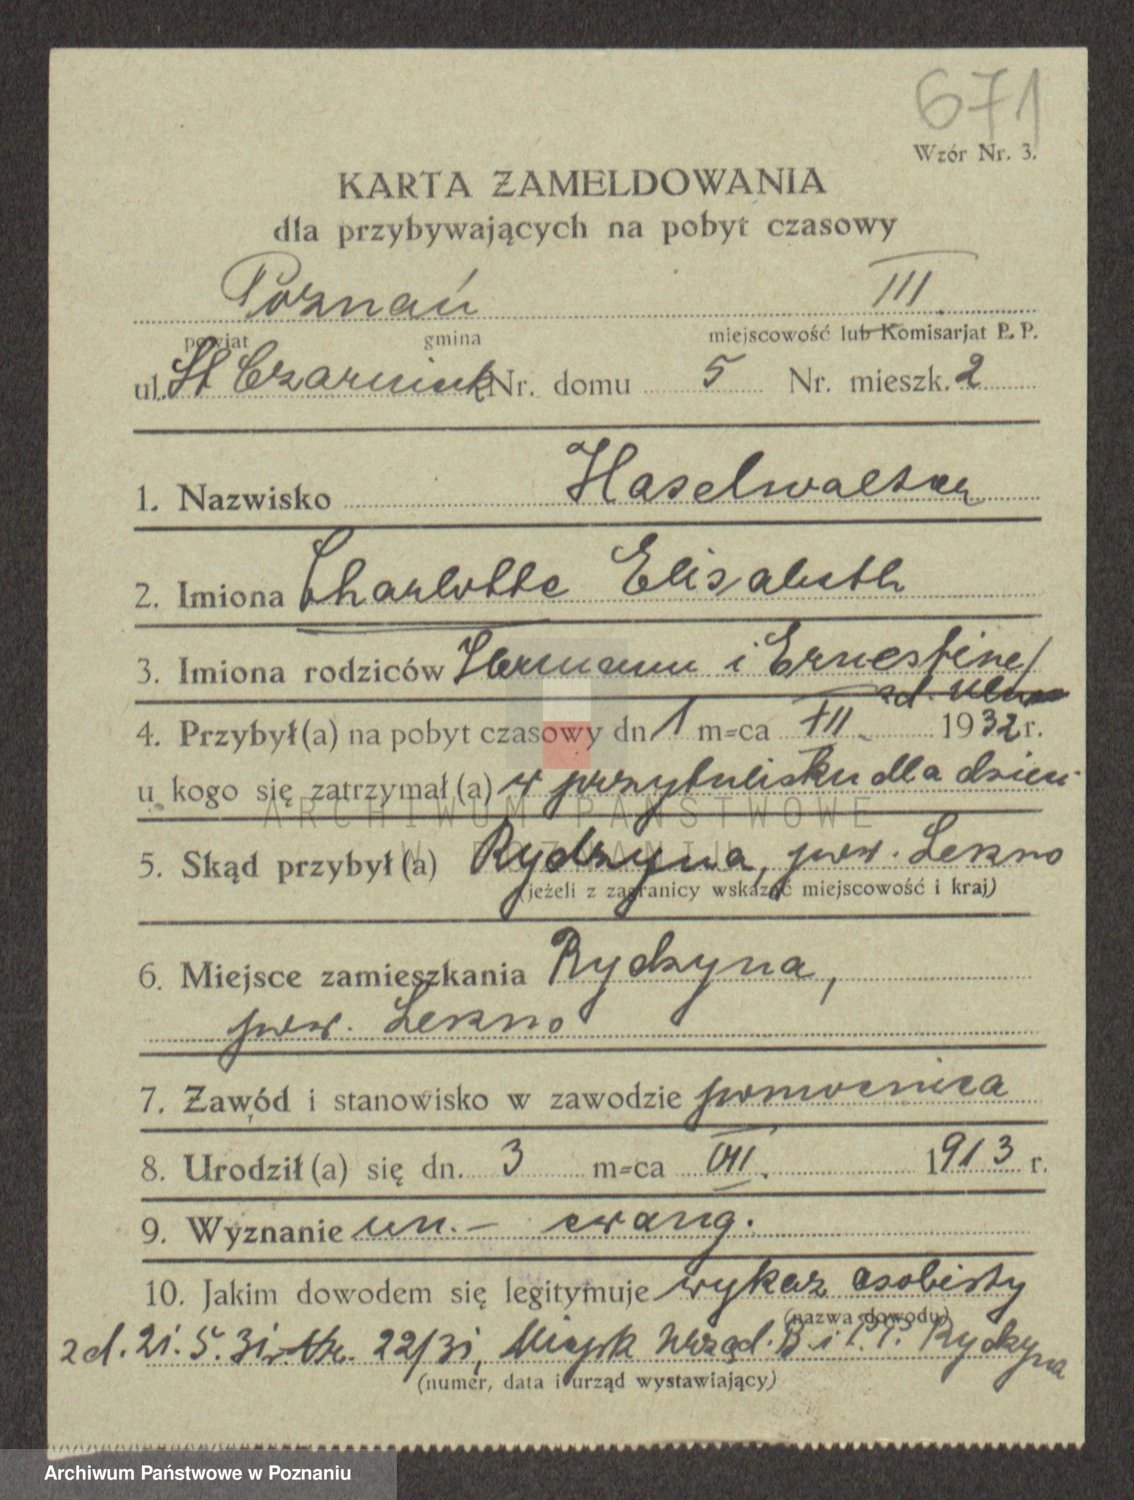 671
Wzór Nr. 3.
KARTA ZAMELDOWANIA
dla przybywających na pobyt czasowy
Poznań III
powiat gmina miejscowość lub Komisarjat P. P.
ul. St Czarnieck Nr. domu 5 Nr. mieszk. 2
1. Nazwisko Haselwalter
2. Imiona Charlotte Elisabeth
3. Imiona rodziców Hermann i Ernestine/
zd.
4. Przybył(a) na pobyt czasowy dn. 1 m-ca XII 1932 r.
u kogo się zatrzymał(a) w przytulisku dla dzieci
ARCHIWUM PAŃSTWOWE
W POZNANIU
5. Skąd przybył(a) Rydzyna, pow. Leszno
(jeżeli z zagranicy wskazać miejscowość i kraj)
6. Miejsce zamieszkania Rydzyna,
pow. Leszno
7. Zawód i stanowisko w zawodzie pomocnica
8. Urodził(a) się dn. 3 m-ca VII. 1913 r.
9. Wyznanie un. - ewang.
10. Jakim dowodem się legitymuje wykaz osobisty
(nazwa dowodu)
z d. 21. 5. 31 r. 22/31, Miejsk Urząd. B. i P. P. Rydzyna
(numer, data i urząd wystawiający)
Archiwum Państwowe w Poznaniu